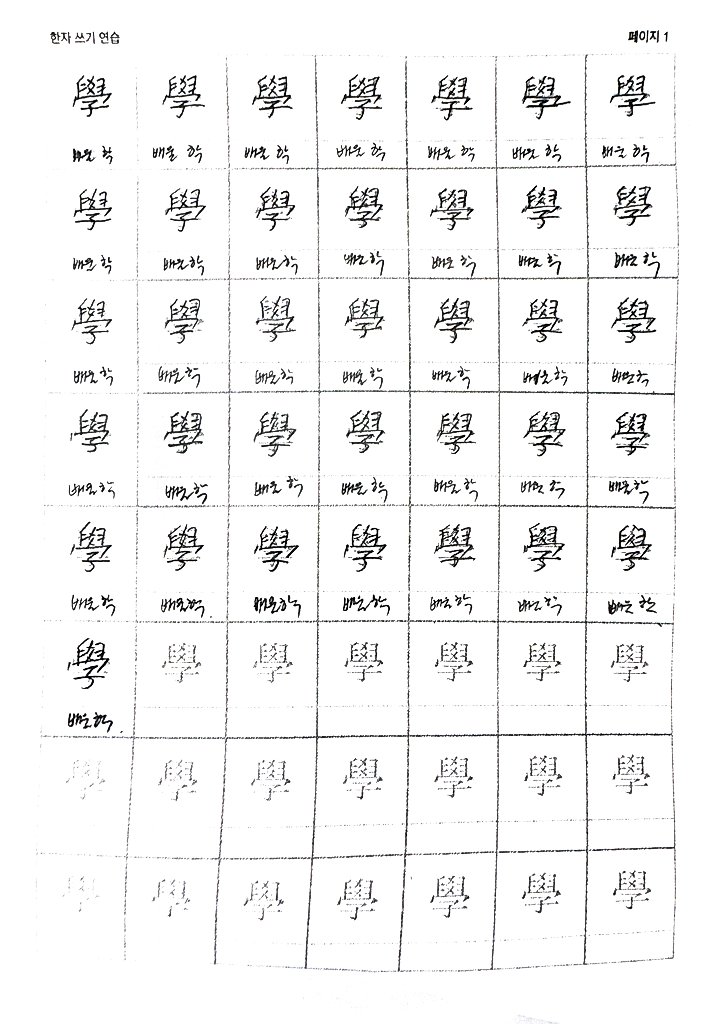 한자 쓰기 연습 페이지 1
學 學 學 學 學 學 學
배울 학 배울 학 배울 학 배울 학 배울 학 배울 학 배울 학
學 學 學 學 學 學 學
배울 학 배울 학 배울 학 배울 학 배울 학 배울 학 배울 학
學 學 學 學 學 學 學
배울 학 배울 학 배울 학 배울 학 배울 학 배울 학 배울 학
學 學 學 學 學 學 學
배울 학 배울 학 배울 학 배울 학 배울 학 배울 학 배울 학
學 學 學 學 學 學 學
배울 학 배울 학. 배울 학 배울 학 배울 학 배울 학 배울 학
學 學 學 學 學 學 學
배울 학.
學 學 學 學 學 學 學
學 學 學 學 學 學 學